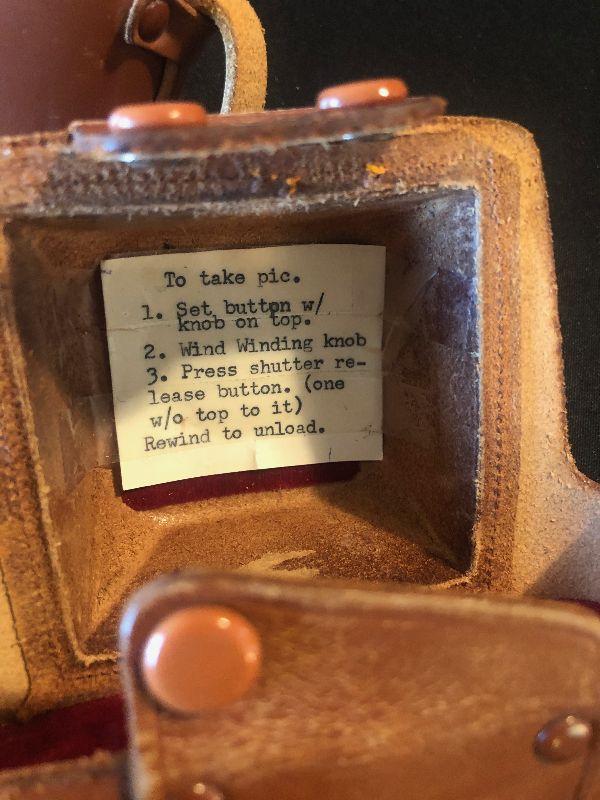 To take pic.
1. Set button w/
knob on top.
2. Wind Winding knob
3. Press shutter re-
lease button. (one
w/o top to it)
Rewind to unload.